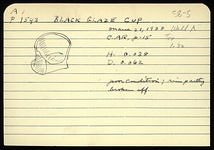 A:
P 1543 BLACK GLAZE CUP 58-5
March 21, 1938 Well A
C.A.R. p. 15
H. 0.038
D. 0.062
poor condition; rim partly
broken off